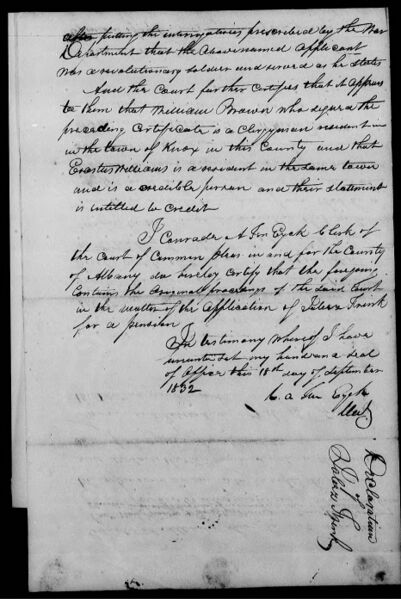 after putting the interrogatories prescribed by the War
Department that the above named applicant
was a revolutionary soldier and served as he states
And the Court further certifies that it appears
to them that William Brown who signed the
preceding certificate is a Clergyman resident in
in the town of Knox in this County and that
Erastus Williams is a resident in the same town
and is a credible person and their statement
is intitled to credit
I Conradt A Ten Eyck Clerk of
the Court of Common Pleas in and for the County
of Albany do hereby Certify that the foregoing
Contains the original proceedings of the said Court
in the matter of the application of Frink
for a pension
In testimony whereof I have
hereunto set my hand and seal
of office this 18th day of September
1832
C. A Ten Eyck
Clerk
Declaration
of
Frink